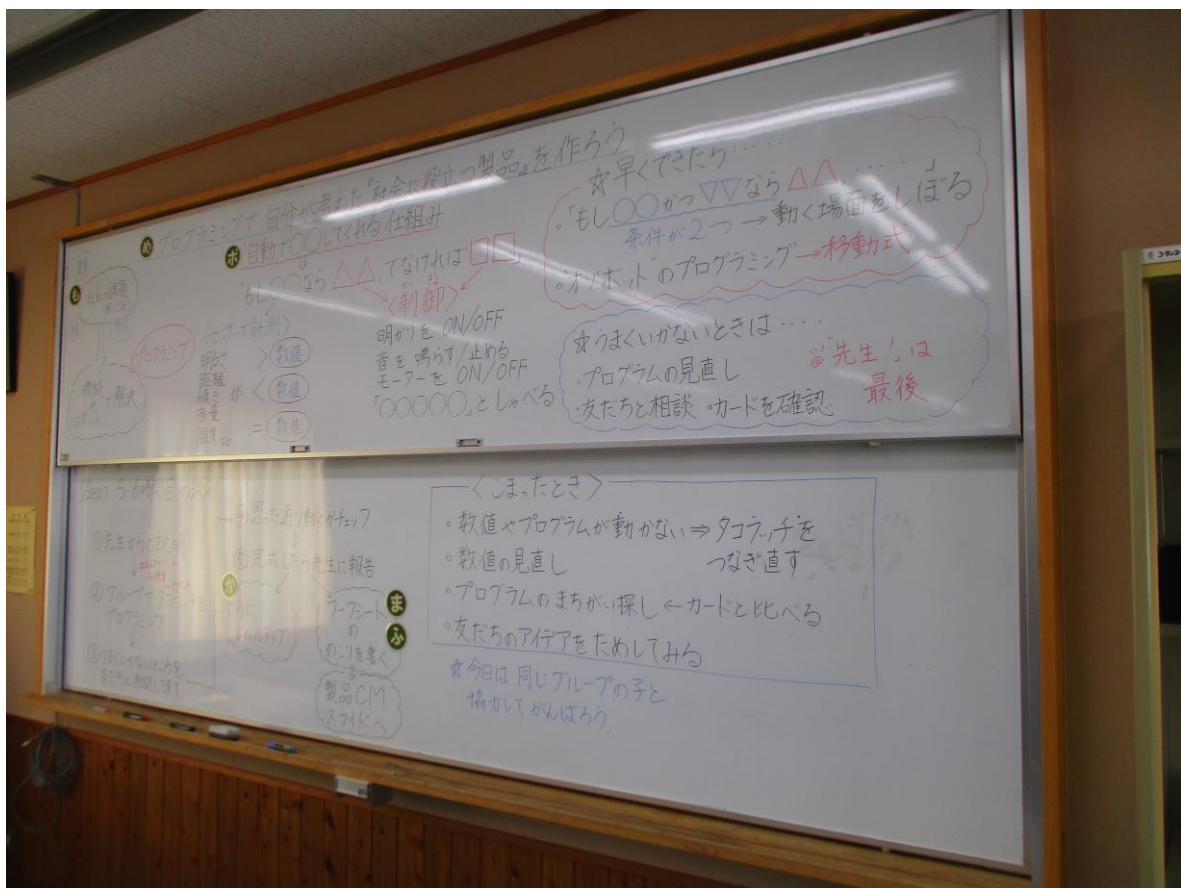 め プログラミングで自分が考えた『社会に役立つ製品』を作ろう
ポ 自動で○○してくれる仕組み
「もし○○なら△△，でなければ□□」
せいぎょ
〈制御〉
も
社会の課題
プログラミング
解決
〈センサーで計測〉
明るさ
距離
傾き
音量
温度 など
が
> 数値
< 数値
= 数値
明かりを ON/OFF
音を鳴らす/止める
モーターを ON/OFF
「○○○○○」としゃべる
☆早くできたら・・・・・
・「もし○○かつ▽▽なら△△，・・・・・・」
条件が2つ→動く場面をしぼる
・"オゾボット"のプログラミング→移動式
☆うまくいかないときは・・・・
・プログラムの見直し
・友だちと相談 ・カードを確認
◎「先生！」は
最後
5・6時間目
①先生からの説明
②グループで
プログラミング
③うまくいかないところを
友だちと相談して直す
④思った通り動くかチェック
↓
⑤完成したら先生に報告
か
さらに
ま
ふ
ワークシート
の
のこりを書く
製品CM
スライドへ
〈こまったとき〉
・数値やプログラムが動かない⇒タコラッチを
つなぎ直す
・数値の見直し
・プログラムのまちがい探し←カードと比べる
・友だちのアイデアをためしてみる
☆今日は同じグループの子と
協力してがんばろう